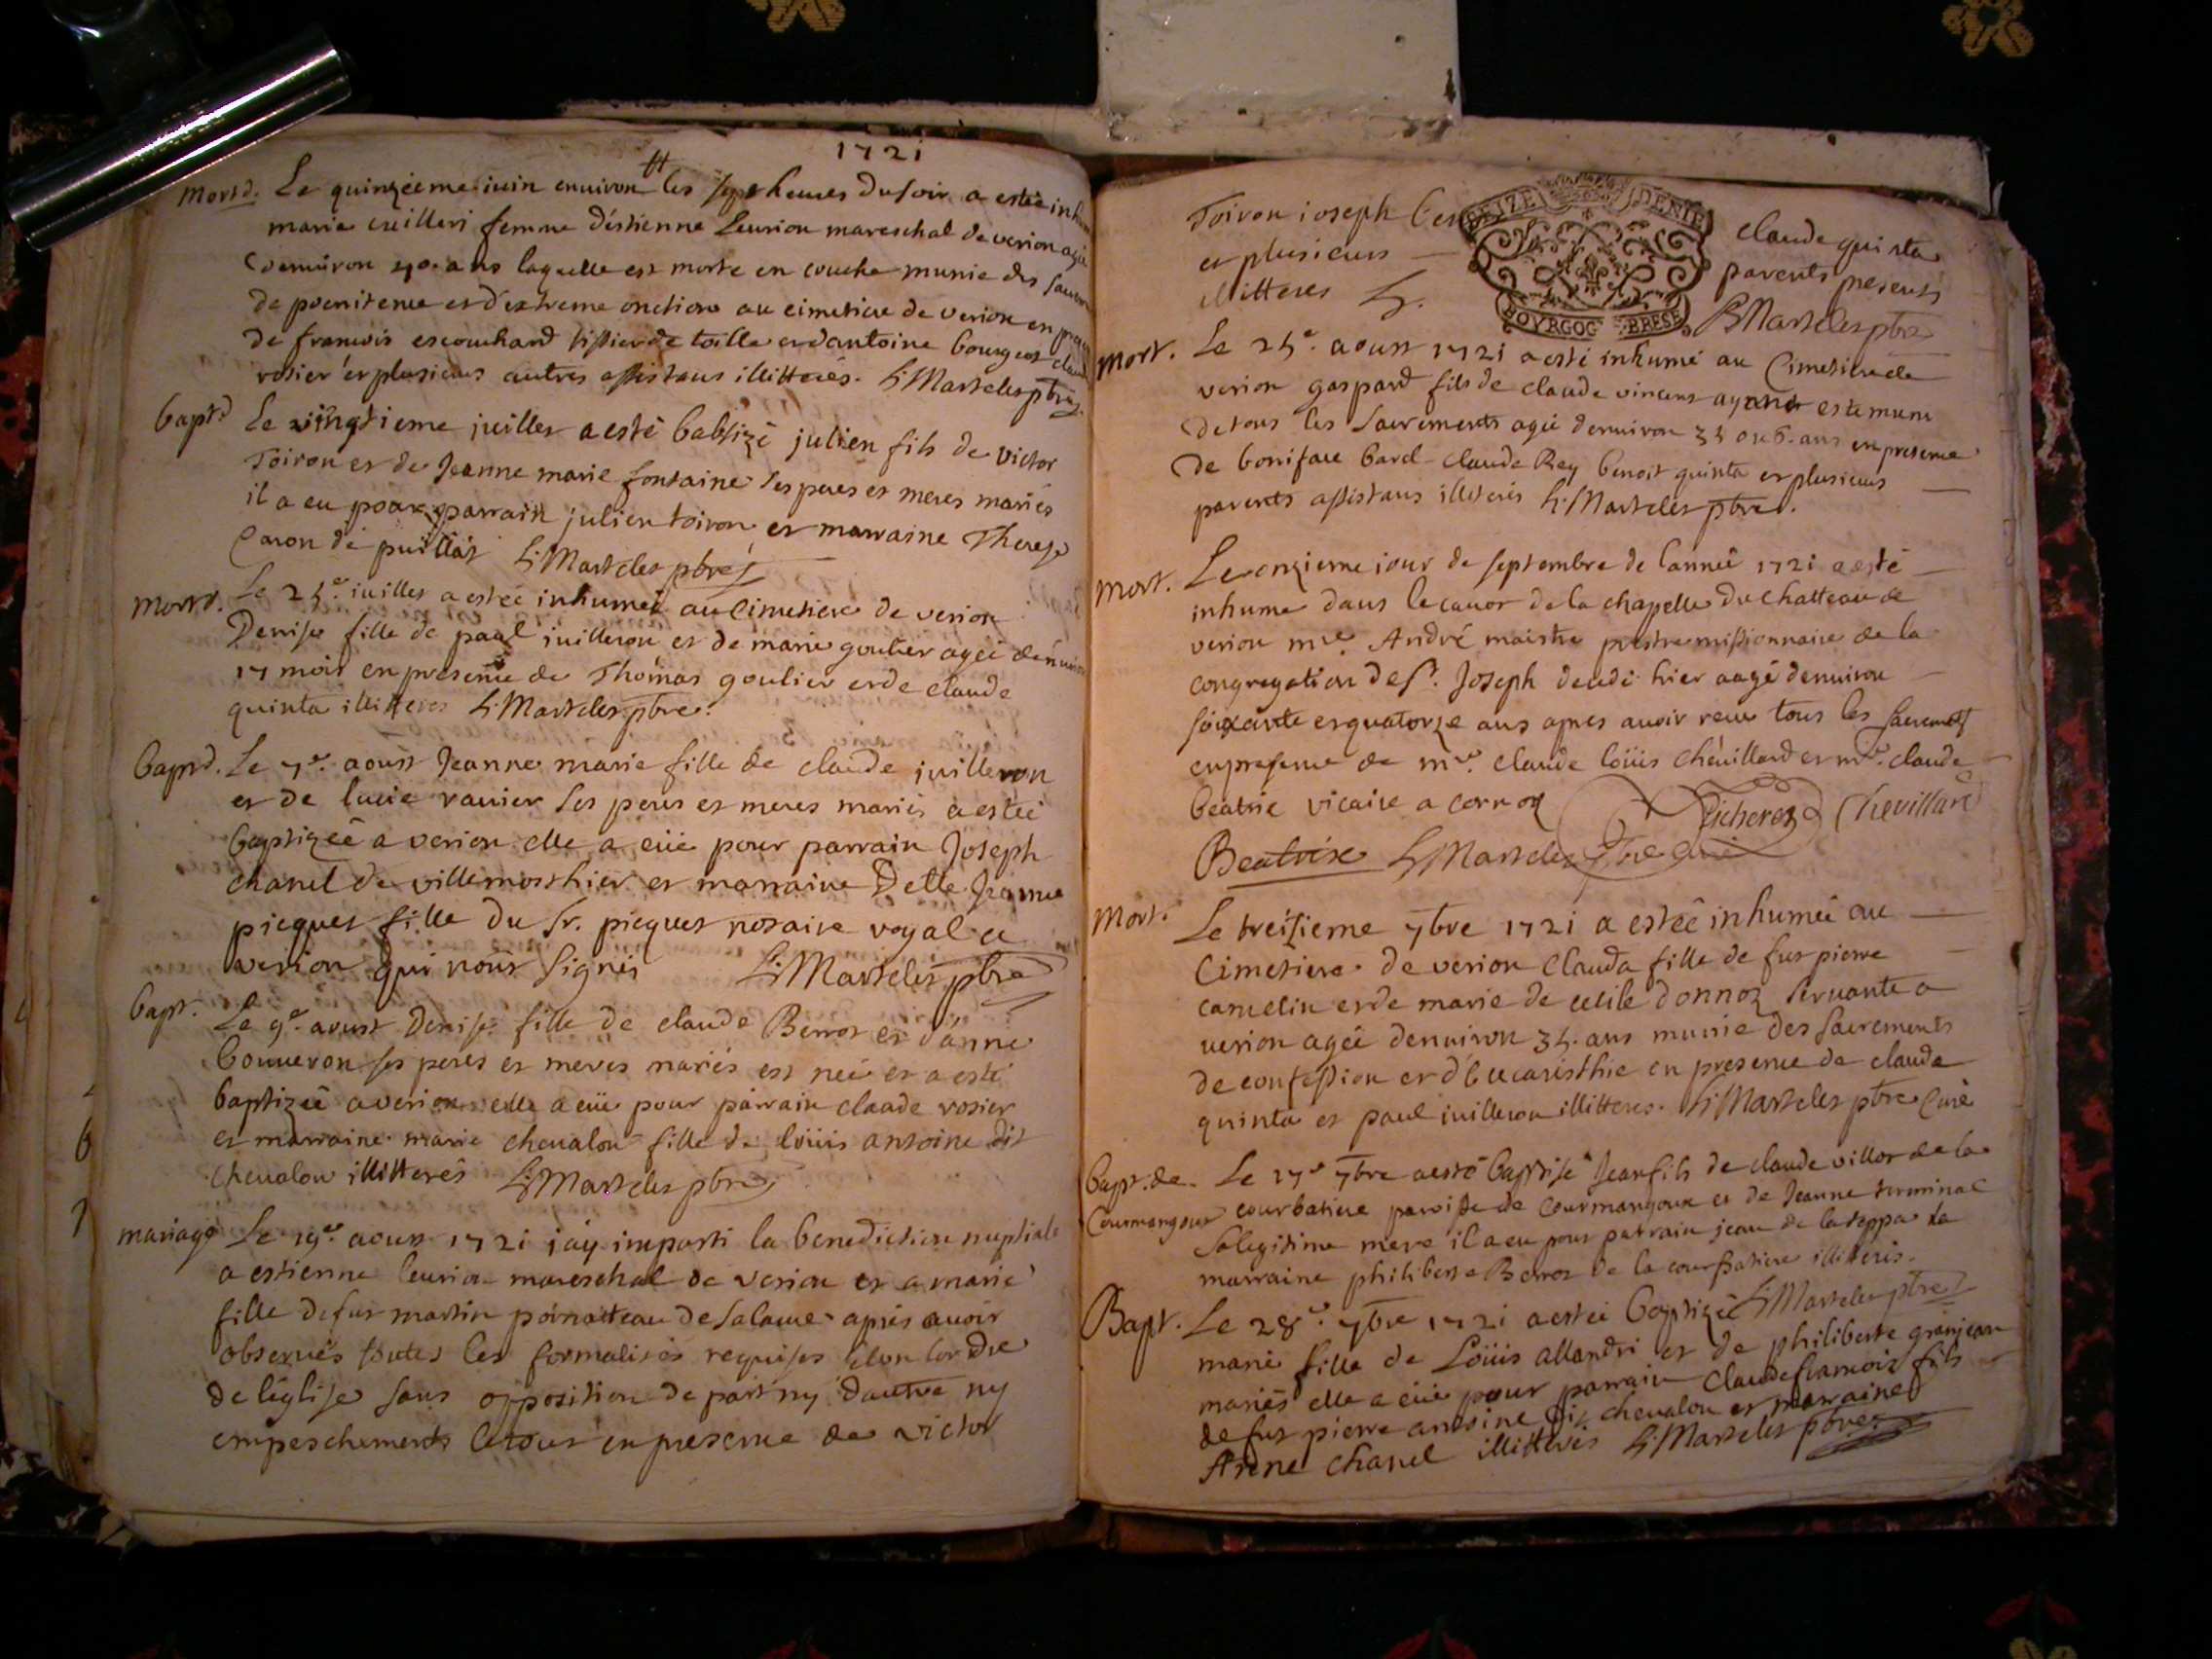 1721
Mort d. Le quinzieme iuin enuiron les sept heures du soir a estée inhu
marie cuilleri femme d'éstienne Leurion mareschal de verion agée
denuiron 40. ans laquelle est morte en couche munie des sacrem
de poenitence et d'extreme onction au cimetiere de verion en pre
de francois escouchard tissier de toille et d'antoine bourgeos claud
rosier et plusieurs autres assistans illitterés. h: Marteles pbre.
bapt d Le vingtieme juillet a esté babtizé julien fils de victor
Toiron et de Jeanne marie fontaine ses peres et meres mariés
il a eu pour parrain julien toiron et marraine Therese
Caron de puillat h: Marteles pbre
Mort d. Le 25e. iuillet a estée inhumée au Cimetiere de verion
Denise fille de paul iuilleron et de marie goulier agée dénuiron
17 mois en presence de Thómas goulier et de claude
quinta illitteres h: Marteles pbre.
bapt d. Le 7e. aoust Jeanne marie fille de claude juilleron
et de lucie ranier ses peres et meres mariés a estée
baptizéé a verion elle a eüe pour parrain Joseph
chanel de villemosthier et marraine Delle Jeanne
picquet fille du Sr. picquet notaire royal a
verion qui nous signés h: Marteles pbre
bapt. Le 9e. aoust Denise fille de claude Berrot et d'anne
bouueron ses peres et meres mariés est neé et a esté
baptizeé a verion elle a eüe pour parrain claude rosier
et marraine marie cheualon fille de loüis antoine dit
cheualon illitterés h: Marteles pbre
mariage Le 19e. aoust 1721 j'ay imparti la benediction nuptiale
a estienne leurion mareschal de verion et a marie
fille de fut martin poinatteau de salaue aprés auoir
obserués toutes les formalités requises selon lordre
de léglise sans opposition de part ny dautre ny
empeschements le tout en presence de victor
Toiron ioseph ben claude quinta
et plusieurs parents presents
illitteres h. h Marteles pbre
SEIZE DENIE
BOVRGOG BRESE
mort. Le 25e. aoust 1721 a esté inhumé au Cimetiere de
verion gaspard fils de claude vincent ayant esté muni
de tous les sacrements agé denuiron 35 ou 6. ans en presence
de boniface bard claude Rey benoit quinta et plusieurs
parents assistans illiterés h: Marteles pbre.
mort. Le onzieme iour de septembre de l'année 1721 a esté
inhumé dans le caueau de la chapelle du chatteau de
verion mre. André maistre prestre missionnaire de la
congregation de St. Joseph decedé hier aagé denuiron
soixante et quatorze ans apres auoir receu tous les sacrements
en presence de mre. claude loüis cheuillard et mre. claude
beatrix vicaire a cornoz Picherez Chevillard
Beatrix h Marteles pbre curé
Mort. Le treizieme 7bre 1721 a estéé inhumée au
Cimetiere de verion Clauda fille de fut pierre
camelin et de marie de cecile donnoz seruante a
uerion agéé denuiron 35. ans munie des sacrements
de confession et d'Eucaristhie en presence de claude
quinta et paul iuilleron illitteres. h: Marteles pbre Curé
Bapt. de Courmangoux Le 17e 7bre a esté baptisé Jean fils de claude villot de la
courbatiere paroisse de Courmangoux et de Jeanne terminal
sa legitime mere il a eu pour parrain jean de la teppa sa
marraine philiberte Berrot de la courbatiere illitterés.
Bapt. Le 28e. 7bre 1721 a estéé baptizéé h Marteles pbre
marie fille de Loüis allandri et de philiberte granjean
mariés elle a eüe pour parrain claude francois fils
de fut pierre antoine dit cheualon et marraine
Anne chanel illitterés h: Marteles pbre